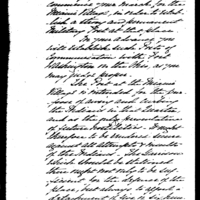 commence your march, for the
Miami Village, in order to estab-
lish a strong and permanent
Military Post at that place
In your advance, you
will establish such Posts of
Communication with Fort
Washington on the Ohio, as you
may judge proper.
The Post at the Miami
Village is intended for the pur-
pose of awing and curbing
the Indians in that quarter, and
as the only preventative
of future hostilities. It ought
therefore to be rendered secure
against all attempts and insults
of the Indians. The Garrison
which should be stationed
there ought not only to be suf-
ficient for the defence of the
place, but always to afford a
detachment of five or six hun-